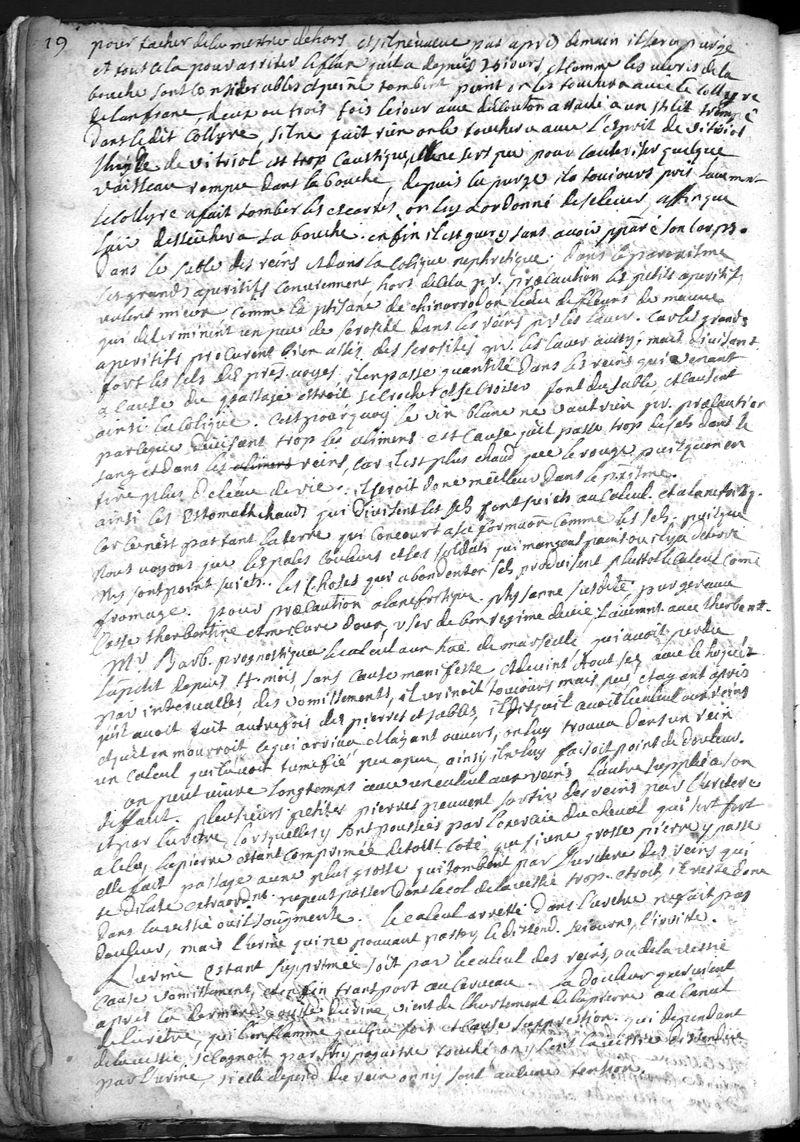 19 pour tacher de la mettre dehors et s'il ne creve pas apres demain il sera purgé
et tout cela pour arriter le flux qu'il a depuis 25 jours et comme les ulceres de la
bouche sont considerables et peine tombent point on les touchera avec le collyre
de lanfranc, deux ou trois fois le jour avec du couton attaché a un stilet trempé
dans le dit collyre s'il ne fait rien on le touchera avec l'esprit de vitriol
l'huyle de vitriol est trop caustique, elle ne sert que pour cauteriser quelque
vaisseau rompu dans la bouche, depuis la purge il a toujours pris lavement
le collyre a fait tomber les escarres, on luy a ordonné de se lever, affin que
l'air dessechera sa bouche. enfin il est guery sans avoir preparé son corps.
dans le sable des reins et dans la colique nephretique. dans le paroxisme
les grands aperitifs conviennent hors de la pr. precaution les petits aperitifs
valent mieux comme la ptisane de chinorrodon l'eau de fleurs de mauve
qui determinent un peu de serosité dans les reins pr les laver. car les grands
aperitifs procurent bien assés des serosités pr. les laver aussy, mais divisant
fort les sels des pres. voyes, il en passe quantité dans les reins qui venant
a cause du passage etroit s'accrocher et se croiser font du sable et causent
ainsi la colique. C'est pourquoy le vin blanc ne vaut rien pr. precaution
parceque divisant trop les alimens est cause qu'il passe trop de sels dans le
sang et dans les reins, car il est plus chaud que le rouge puisqu'on en
tire plus d'eau de vie. il seroit donc meilleur dans le paroxisme.
ainsi les Estomachs chauds qui divisent les sels sont sujets au calcul et a la nefretiq.
car ce n'est pas tant la terre qui concourt a sa formaon comme les sels, puisque
nous voyons que les pales couleurs et les soldats qui mangent
n'y sont point sujets. les choses qui abondent en sels produisent pluttot le calcul come
fromage. pour precaution a la nefretique. ptysanne susdite, purger avec
casse therbentine et mercure doux, user de bon regime de vie, lavement avec therbent.
Mr Barb. prognostiqua le calcul a un hoe de marseille qui avoit perdu
l'apetit depuis 4 mois, sans cause manifeste et devint tout sec avec le hoquet
par intervalles des vomissements, il urinoit toujours mais peu, et ayant apris
qu'il avoit fait autrefois des pierres et sables, il dit qu'il avoit le calcul aux reins
et qu'il en mourroit ce qui arriva et l'ayant ouvert, on luy trouva dans un rein
un calcul qui l'avoit tumefié peu a peu, ainsy il ne luy faisoit point de douleur.
on peut vivre longtemps avec un calcul aux reins l'autre supplée a son
deffaut. plusieurs petites pierres peuvent sortir des reins par l'uretere
et par l'uretre lorsqu'elles y sont poussées par l'exercice du cheval qui sert fort
a cela, la pierre estant comprimée de tout coté, que si une grosse pierre y passe
elle fait passage a une plus grosse qui tombent par l'uretere des reins qui
se dilate extraordnt. ne peut passer dans le col de la vessie trop etroit, il reste donc
dans la vessie où il s'augmente. le calcul arresté dans l'uretre ne fait pas
douleur, mais l'urine qui ne pouvant passer, le distend. sejourne, l'irrite.
L'urine estant supprimée soit par le calcul des reins, ou de la vessie
cause vomissement, et enfin transport au cerveau. la douleur
apres la derniere goutte d'urine, vient de l'heurtement de la pierre au canal
de l'uretre, qui s'enflamme quelque fois et cause suppression qui dependant
de la vessie se cognoit par touché on y sent la vessie distendue
par l'urine, si elle depend du rein on n'y sent aucune tension.